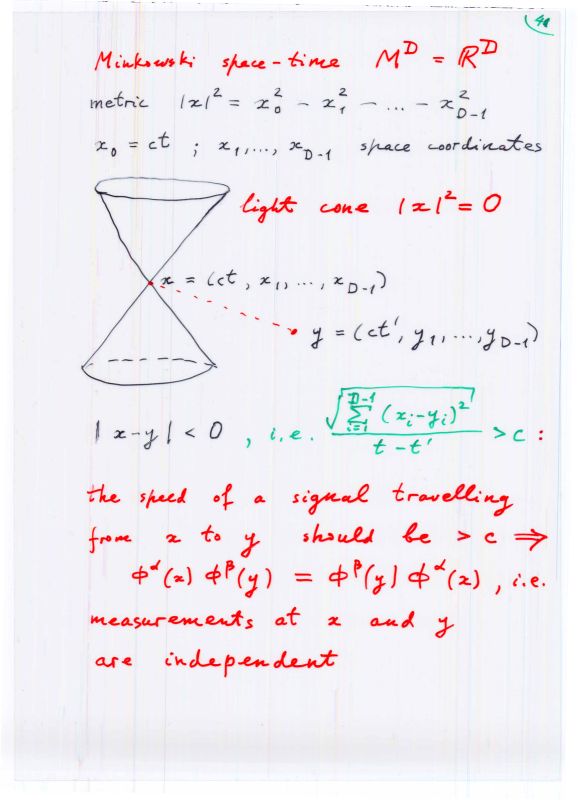 41
Minkowski space-time M^D = ℝ^D
metric |x|² = x₀² − x₁² − ... − x²_{D-1}
x₀ = ct ; x₁,..., x_{D-1} space coordinates
light cone |x|² = 0
x = (ct, x₁,..., x_{D-1})
y = (ct', y₁,..., y_{D-1})
|x-y| < 0 , i.e. √(∑_{i=1}^{D-1} (x_i-y_i)²) / (t-t') > c :
the speed of a signal travelling
from x to y should be > c ⇒
ϕ^α(x) ϕ^β(y) = ϕ^β(y) ϕ^α(x) , i.e.
measurements at x and y
are independent